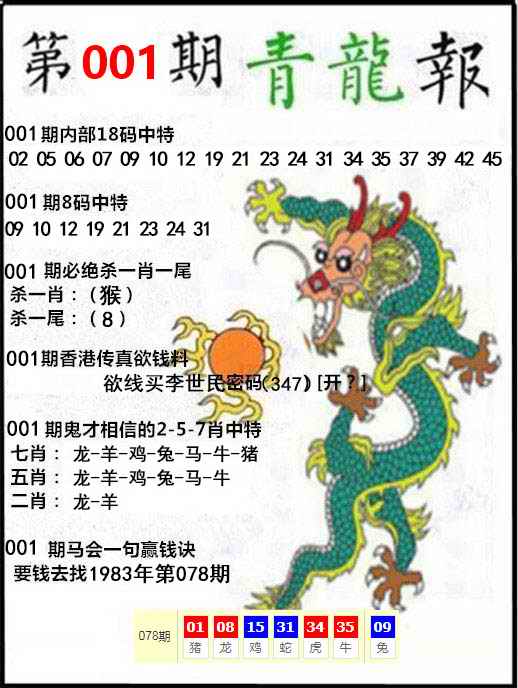 第001期青龍報
001期内部18码中特
02 05 06 07 09 10 12 19 21 23 24 31 34 35 37 39 42 45
001期8码中特
09 10 12 19 21 23 24 31
001 期必绝杀一肖一尾
杀一肖：（猴）
杀一尾：（8）
001期香港传真欲钱料
欲线买李世民密码(347) [开？]
001期鬼才相信的2-5-7肖中特
七肖：龙-羊-鸡-兔-马-牛-猪
五肖：龙-羊-鸡-兔-马-牛
二肖：龙-羊
001 期马会一句赢钱诀
要钱去找1983年第078期
078期 01 08 15 31 34 35 09
猪 龙 鸡 蛇 虎 牛 兔